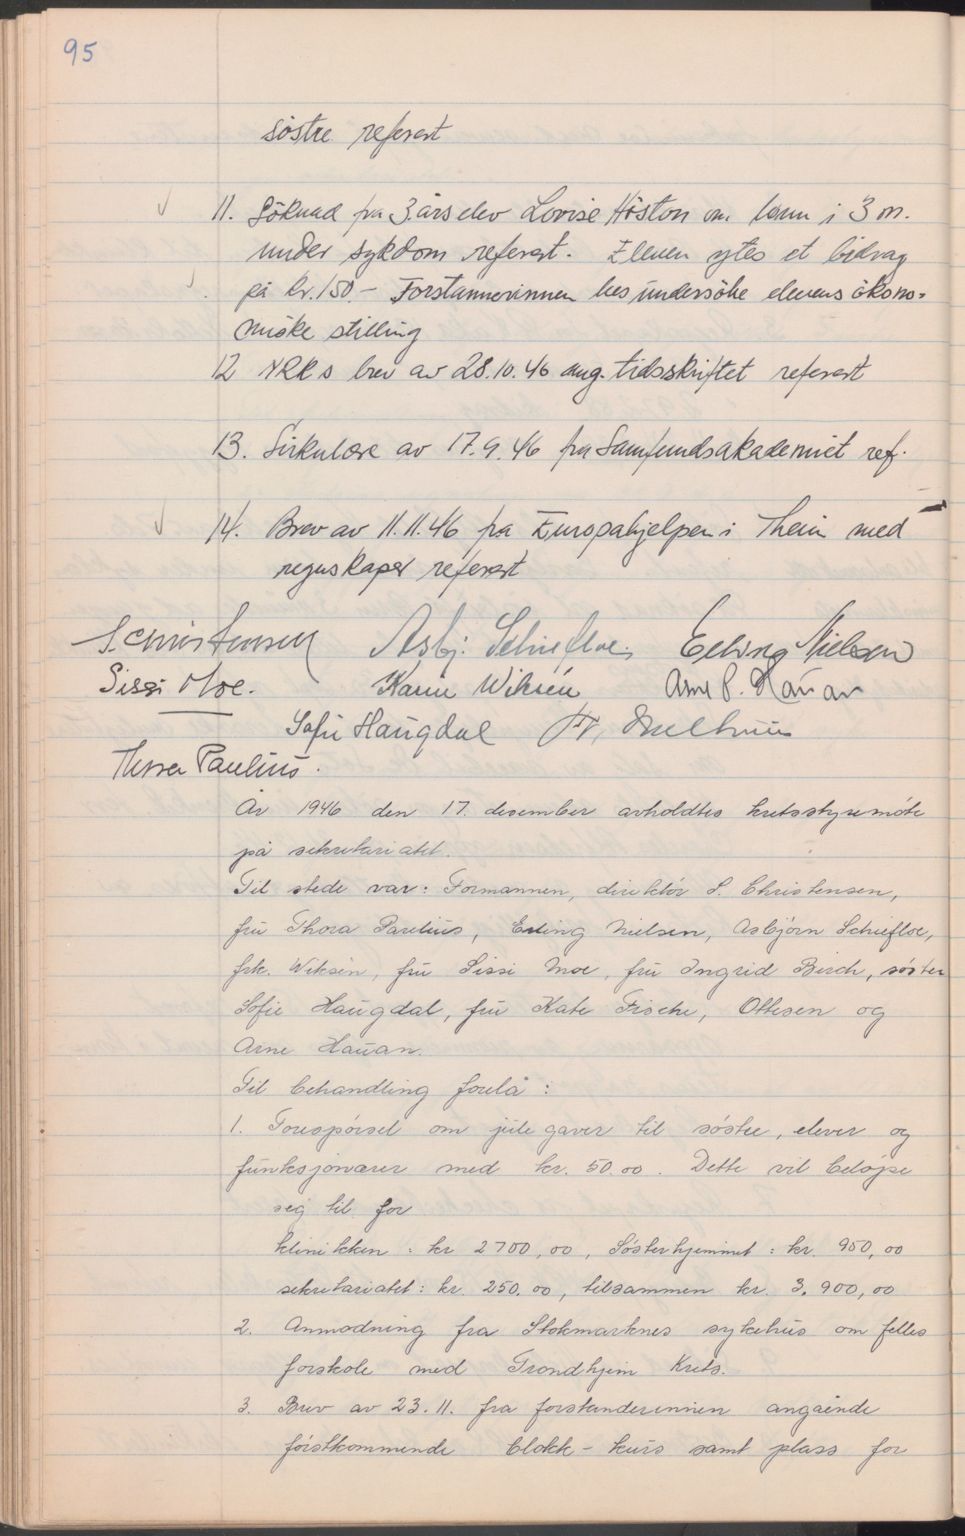 95
søstre referert
11. Søknad fra 3.års elev Lovise Høston om lønn i 3 m.
under sykdom referert. Eleven ytes et bidrag
på kr. 150.- Forstannerinnen bes undersøke elevens økono-
miske stilling
12 NRKs brev av 28.10.46 ang. tidsskriftet referert
13. Sirkulære av 17.9.46 fra Samfundsakademiet ref.
14. Brev av 11.11.46 fra Europahjelpen i Theim med
regnskaper referert
S. Christensen Asbj. Schiefloe. Erling Nielsen
Sissi Moe. Karin Wiksén Arne P. Hauan
Sofie Haugdal Fr.
Thora Paulius.
År 1946 den 17. desember avholdtes kretsstyremøte
på sekretariatet.
Til stede var: Formannen, direktør S. Christensen,
fru Thora Parelius, Erling Nielsen, Asbjørn Schiefloe,
frk. Wiksèn, fru Sissi Moe, fru Ingrid Birch, søster
Sofie Haugdal, fru Kate Fische, Ottesen og
Arne Hauan.
Til behandling forelå:
1. Forespørsel om julegaver til søstre, elever og
funksjonærer med kr. 50.00. Dette vil beløpe
seg til for
klinikken: kr 2700,00, Søsterhjemmet: kr. 950,00
sekretariatet: kr. 250.00, tilsammen kr. 3.900,00
2. Anmodning fra Stokmarknes sykehus om felles
forskole med Trondhjem Krets.
3. Brev av 23.11. fra forstanderinnen angående
førstkommende blokk-kurs samt plass for